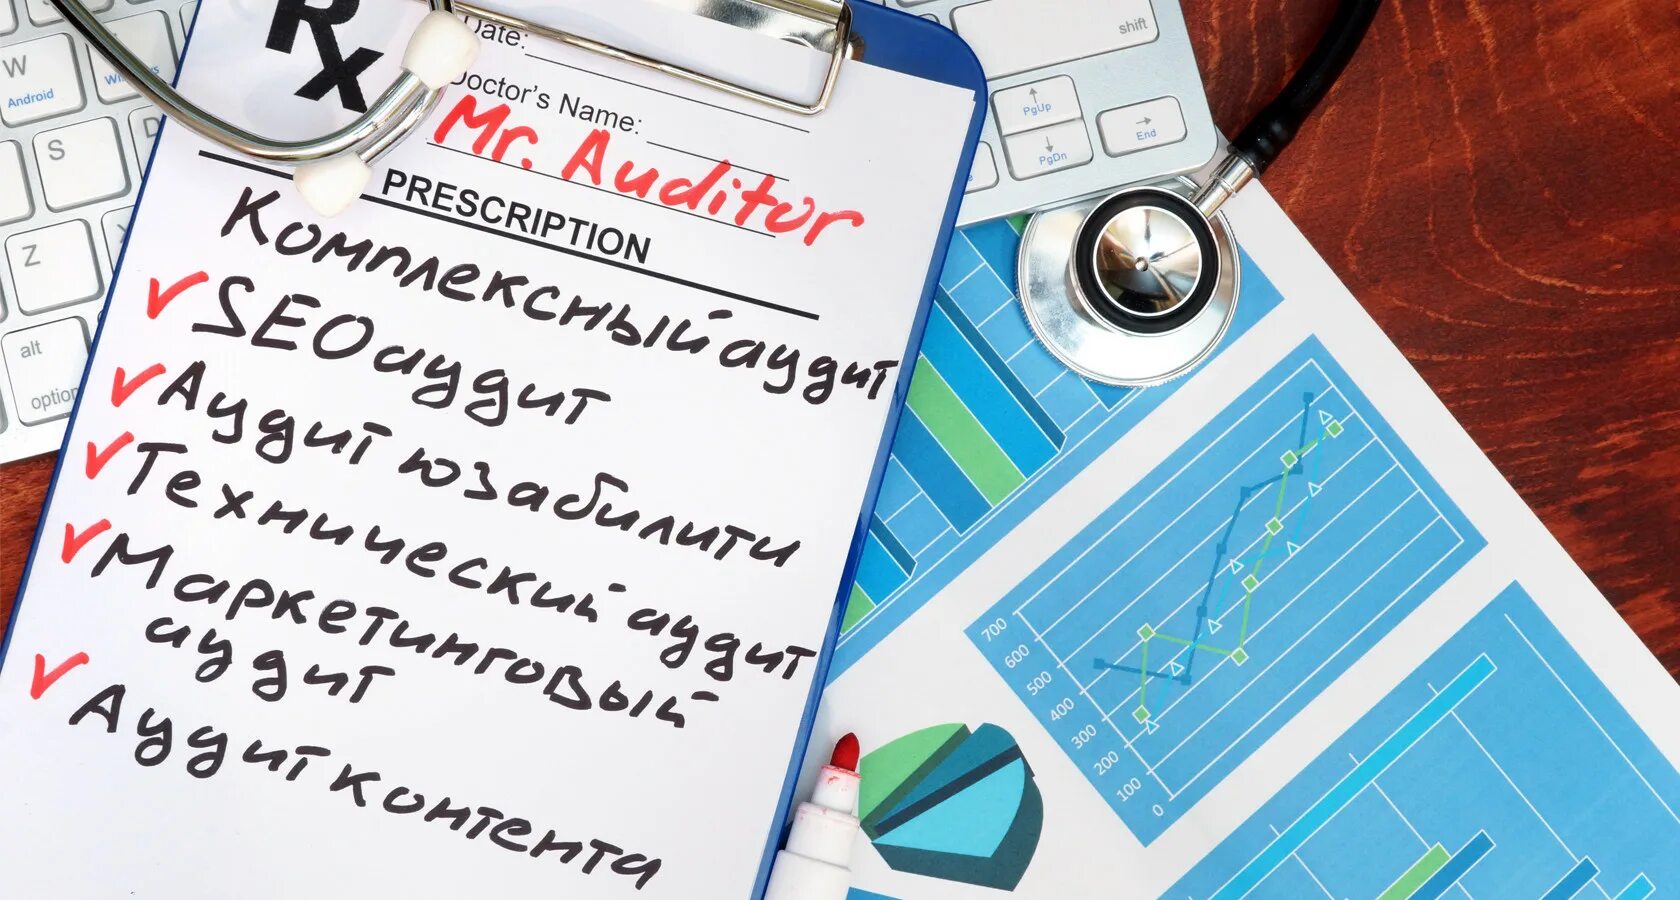 Rx
Date:
Doctor's Name:
Mr. Auditor
PRESCRIPTION
Комплексный аудит
SEO аудит
Аудит юзабилити
Технический аудит
Маркетинговый
аудит
Аудит контента
W
Android
Windows
S
D
Z
alt
option
shift
PgUp
PgDn
End
700
600
500
400
300
200
100
0